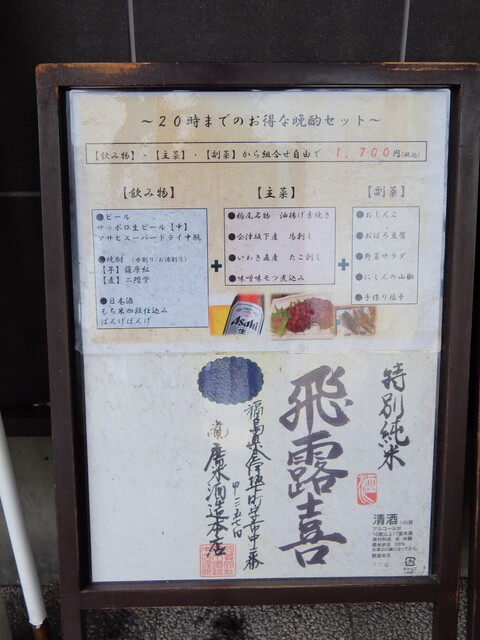 ～20時までのお得な晩酌セット～
【飲み物】・【主菜】・【副菜】から組合せ自由で 1,700円(税込)
【飲み物】
●ビール
サッポロ生ビール【中】
アサヒスーパードライ中瓶
●焼酎 (水割り/お湯割り)
【芋】薩摩紅
【麦】二階堂
●日本酒
もち米四段仕込み
ばんげぼんげ
+
【主菜】
●栃尾名物 油揚げ素焼き
●会津坂下産 馬刺し
●いわき直産 たこ刺し
●味噌味モツ煮込み
+
【副菜】
●おしんこ
●おぼろ豆腐
●野菜サラダ
●にしんの山椒
●手作り塩辛
Asahi
生
特別純米
飛露喜
福島県会津坂下町字市中二番
甲三五七四
廣木酒造本店
清酒
アルコール分
16度以上17度未満